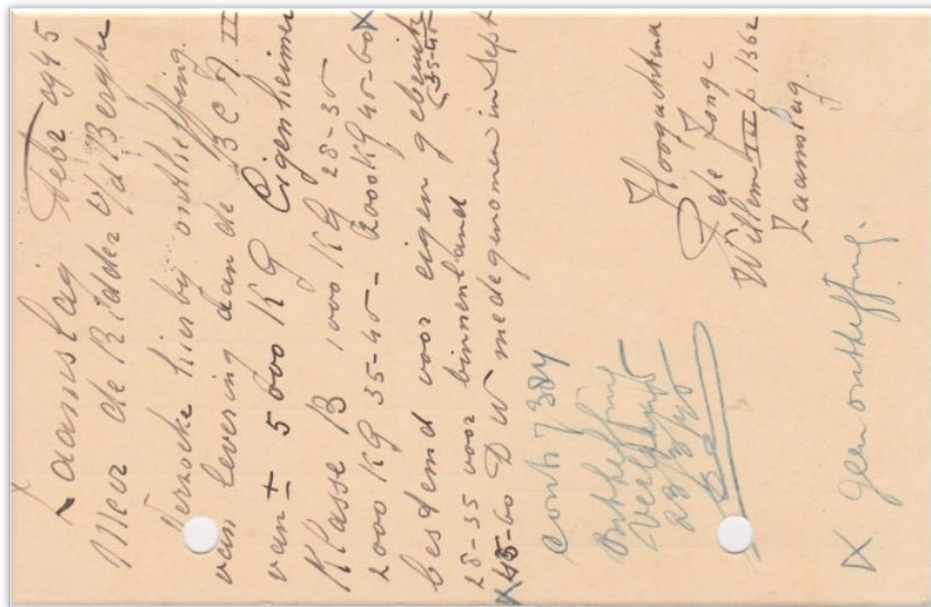 Zaamslag Febr 1945
Meur de Ridder v/d Berghe
Verzoeke hierbij ontheffing
van levering aan de B C A. III
van ± 5000 KG Eigenheimer
Klasse B 1000 KG 28-35
2000 KG 35-45 - 2000 KG 45-60 X
bestemd voor eigen gebruik (35-45
28-35 voor binnenland
X 45-60 D W medegenomen in Sept
Hoogachtend
de Jonge
Willem III
Zaamslag.
Contr 7384
Ontheffing
verleend
X geen ontheffing.